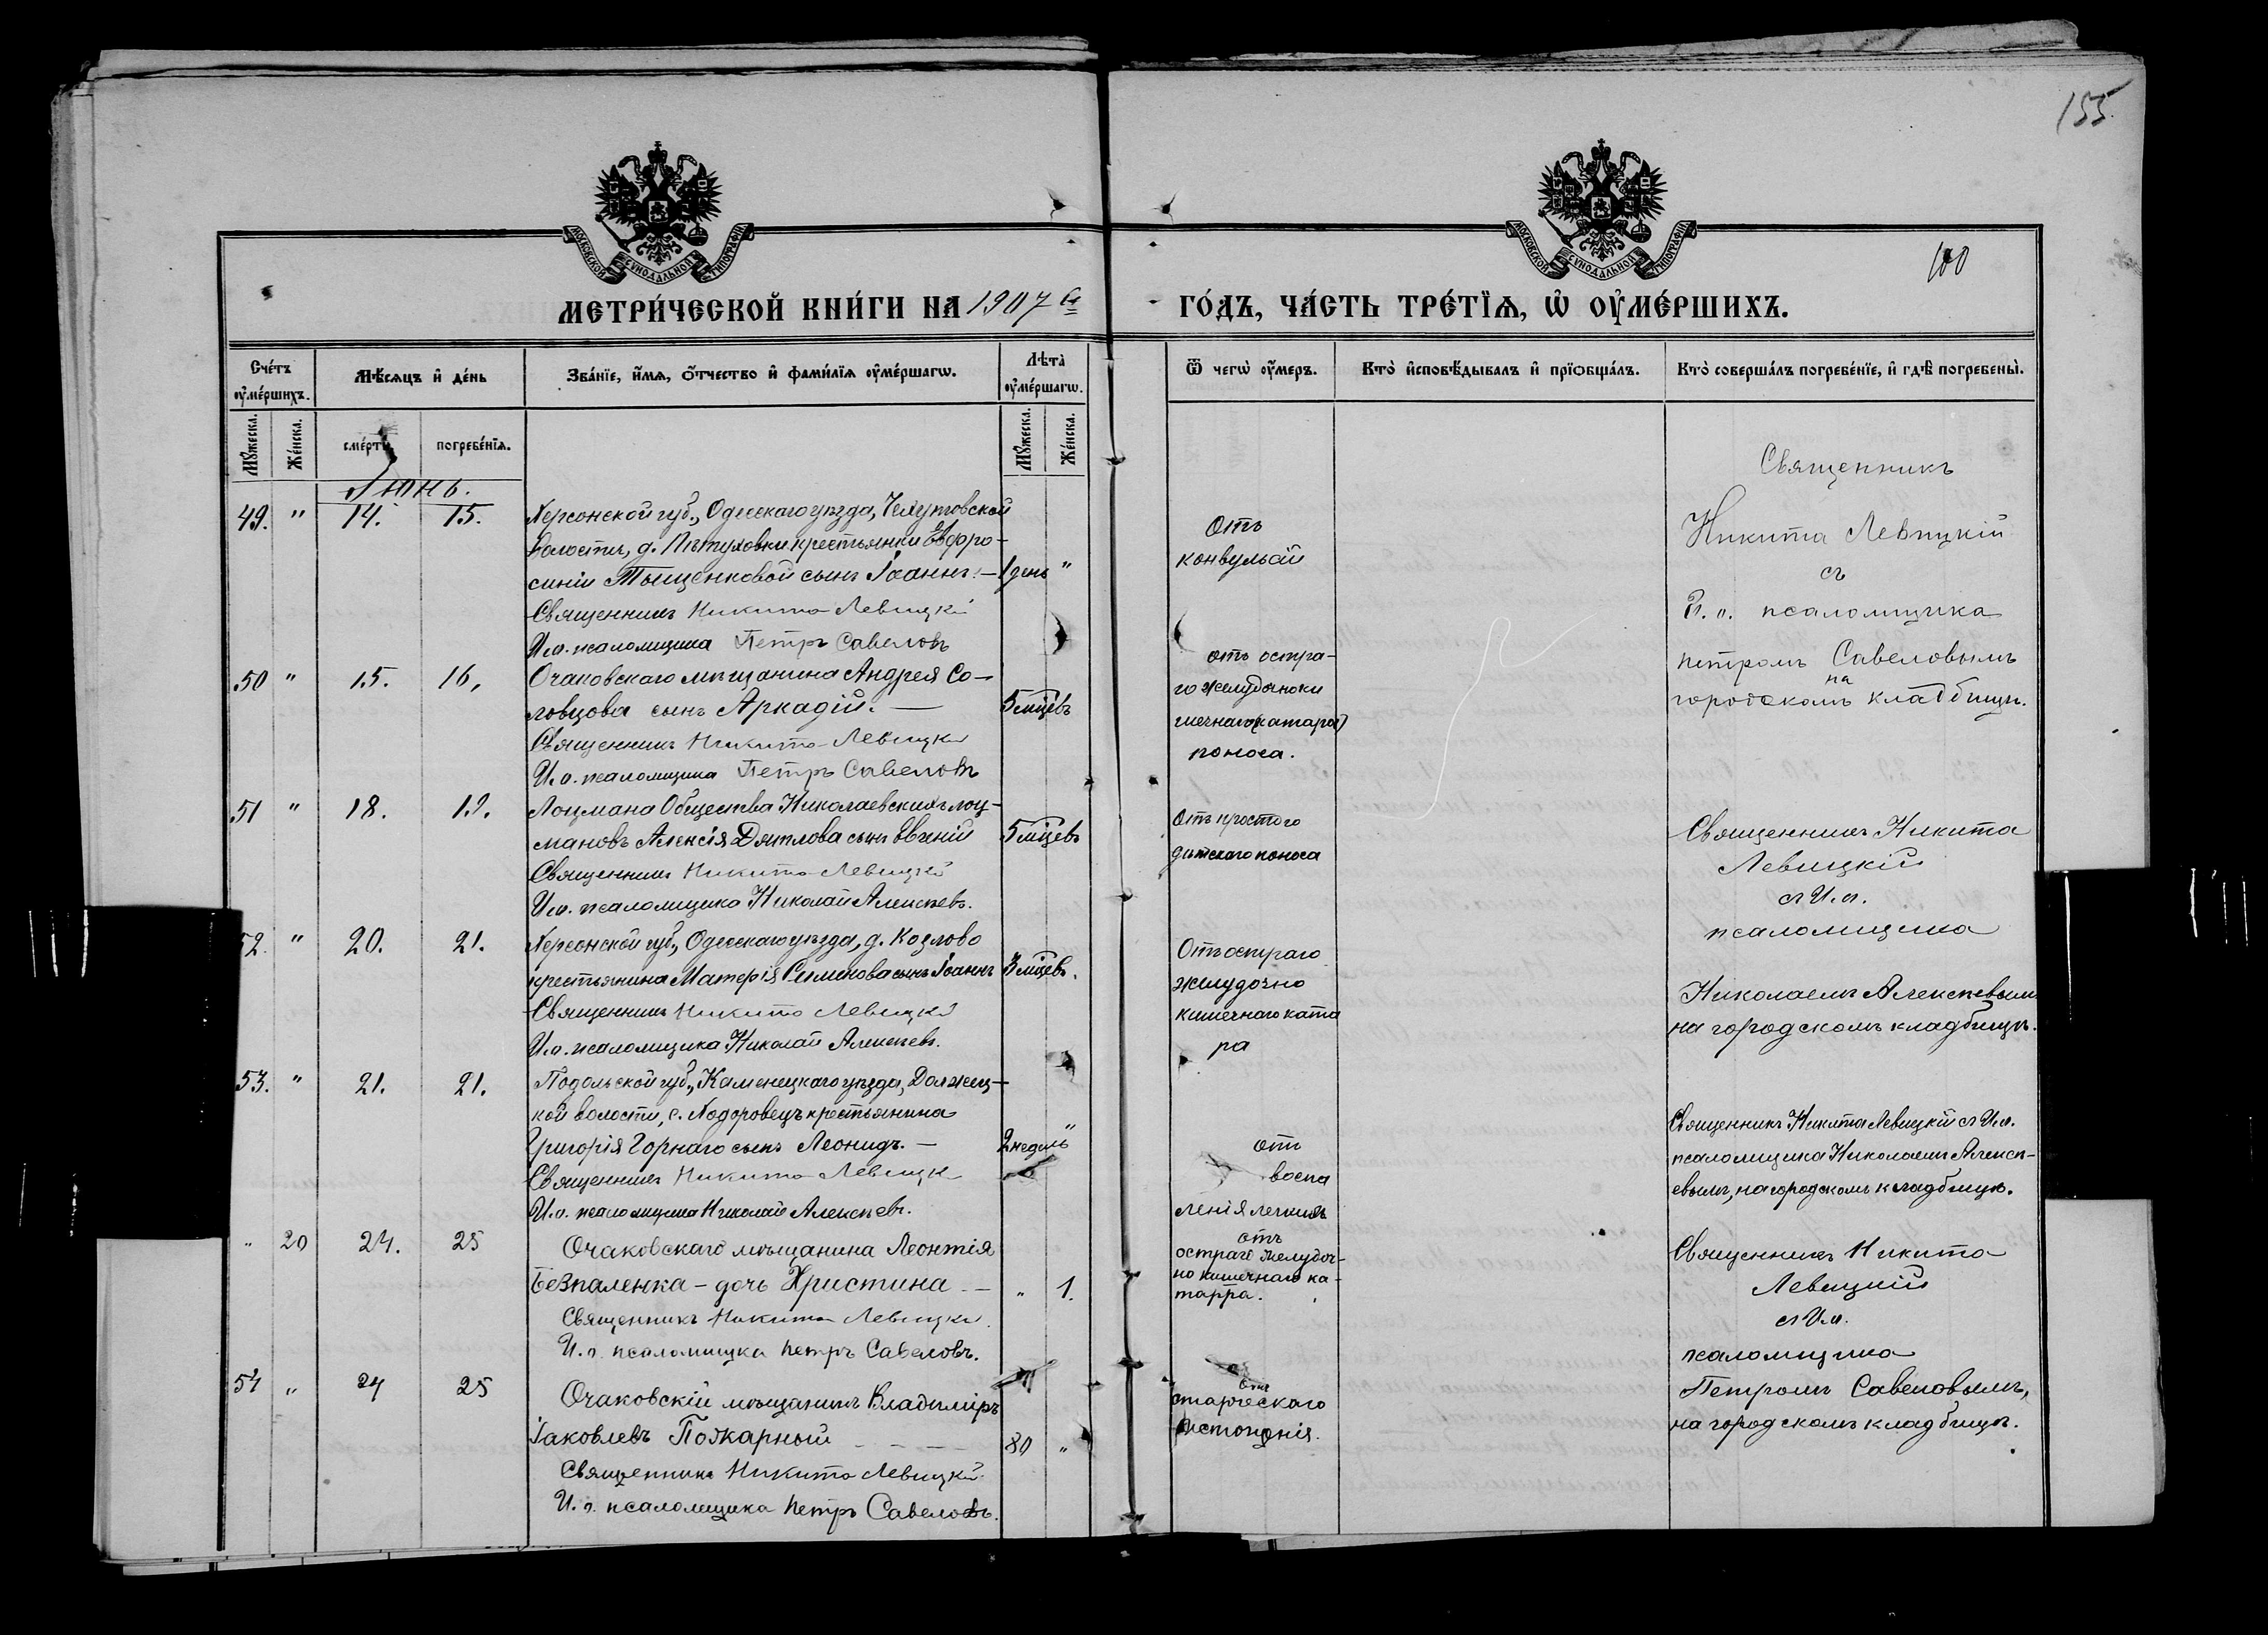 155
100
МОСКОВСКОЙ СУНОДАЛЬНОЙ ТИПОГРАФІИ
МОСКОВСКОЙ СУНОДАЛЬНОЙ ТИПОГРАФІИ
МЕТРИ́ЧЕСКОЙ КНИ́ГИ НА 1907 й
ГО́ДЪ, ЧА́СТЬ ТРЕ́ТЇѦ, Ѡ҆ ОУ҆МЕ́РШИХЪ.
Сче́тъ оу҆ме́ршихъ.
Мꙋ́жеска.
Же́нска.
Мѣ́сяцъ и҆ де́нь
сме́рти
погребе́нїѧ.
Зва́нїе, и҆́мѧ, ѻ҆́тчество и҆ фами́лїѧ оу҆ме́ршагѡ.
Лѣ́та̀ оу҆ме́ршагѡ.
Мꙋ́жеска.
Же́нска.
Ѿ чегѡ̀ оу҆́меръ.
Кто̀ и҆сповѣ́дывалъ и҆ прїѻбща́лъ.
Кто̀ соверша́лъ погребе́нїе, и҆ гдѣ̀ погребены̀.
Іюнь.
49. " 14. 15.
Херсонской губ., Одесскаго уѣзда,
волости, д. Пѣтуховки крестьянки Евфро-
синіи Тыщенковой сынъ Іоаннъ. — 1 день "
Священникъ Никита Левицкій
И.о. псаломщика Петръ Савеловъ
Отъ
конвульсій
Священникъ
Никита Левицкій
съ
И. о. псаломщика
Петромъ Савеловымъ
на
городскомъ кладбищѣ.
50 " 15. 16.
Очаковскаго мѣщанина Андрея Со-
ловцова сынъ Аркадій. — 5 мцевъ
Священникъ Никита Левицкій
И.о. псаломщика Петръ Савеловъ
отъ остра-
го желудочнокишечнаго (катарра)
поноса.
51 " 18. 19.
Лоцмана Общества Николаевскихъ лоц-
мановъ Алексія Дятлова сынъ Евгеній 5 мцевъ
Священникъ Никита Левицкій
И.о. псаломщика Николай Алексѣевъ.
Отъ простого
дѣтскаго поноса
Священникъ Никита
Левицкій
съ И.о.
псаломщика
Николаемъ Алексѣевымъ
на городскомъ кладбищѣ.
52. " 20. 21.
Херсонской губ., Одесскаго уѣзда, д. Козлово
крестьянина сынъ Іоаннъ 3 мцевъ.
Священникъ Никита Левицкій
И.о. псаломщика Николай Алексѣевъ.
Отъ остраго
желудочно
кишечнаго ката
ра
53. " 21. 21.
Подольской губ., Каменецкаго уѣзда, Должец-
кой волости, с. крестьянина
Григорія Горнаго сынъ Леонидъ. — 2 недѣль "
Священникъ Никита Левицкій
И.о. псаломщика Николай Алексѣевъ.
отъ
воспа
ленія легкихъ
Священникъ Никита Левицкій съ И.о.
псаломщика Николаемъ Алексѣ-
евымъ, на городскомъ кладбищѣ.
" 20 24. 25
Очаковскаго мѣщанина Леонтія
Безпаленка – дочь Христина — " 1.
Священникъ Никита Левицкій.
И. о. псаломщика Петръ Савеловъ.
отъ
остраго желудоч-
но кишечнаго ка-
тарра.
Священникъ Никита
Левицкій
съ И.о.
псаломщика
Петромъ Савеловымъ,
на городскомъ кладбищѣ.
54 " 24 25
Очаковскій мѣщанинъ Владиміръ
Іаковлевъ Пожарный - - - 80 "
Священникъ Никита Левицкій
И. о. псаломщика Петръ Савеловъ.
отъ
старческаго
истощенія.